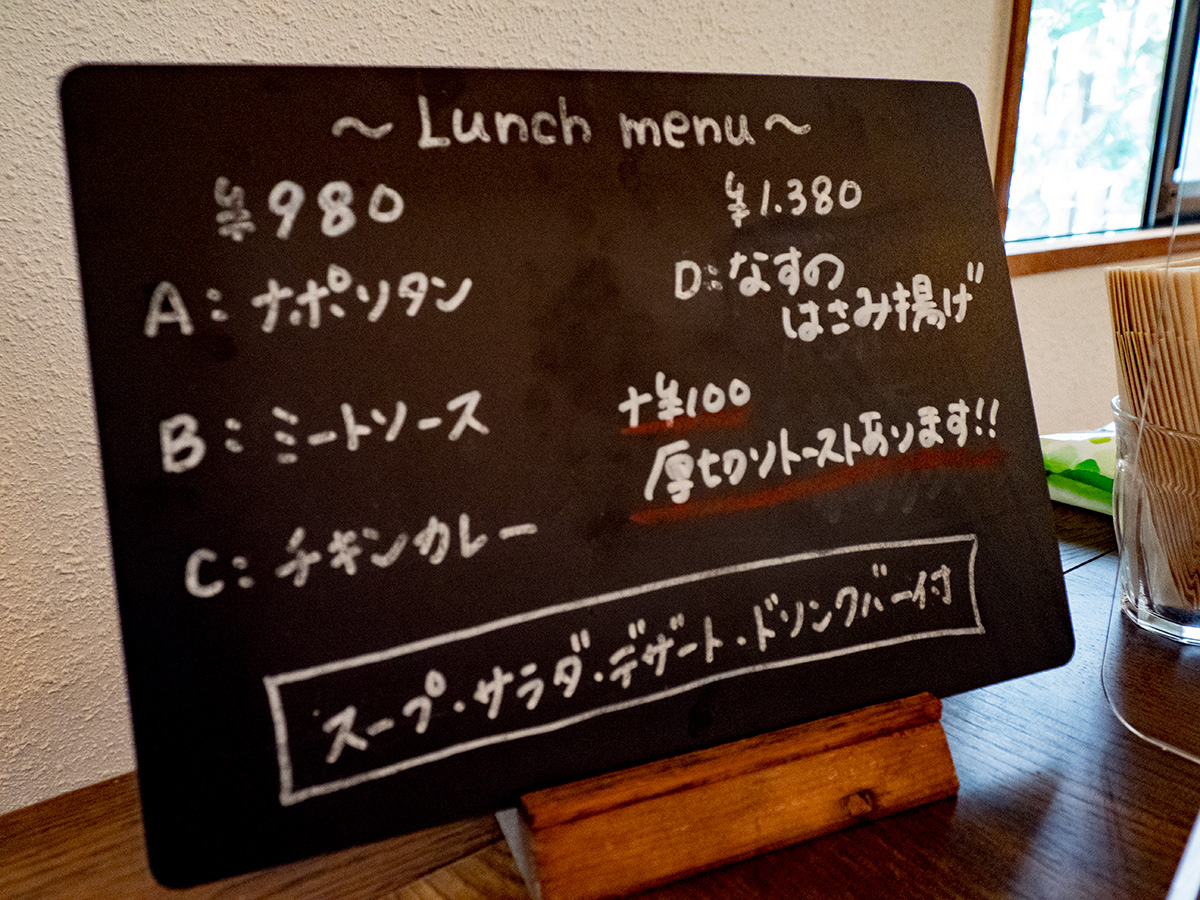 ~ Lunch menu ~
¥980
A: ナポリタン
B: ミートソース
C: チキンカレー
¥1.380
D: なすの
はさみ揚げ
+¥100
厚切りトーストあります!!
スープ・サラダ・デザート・ドリンクバー付